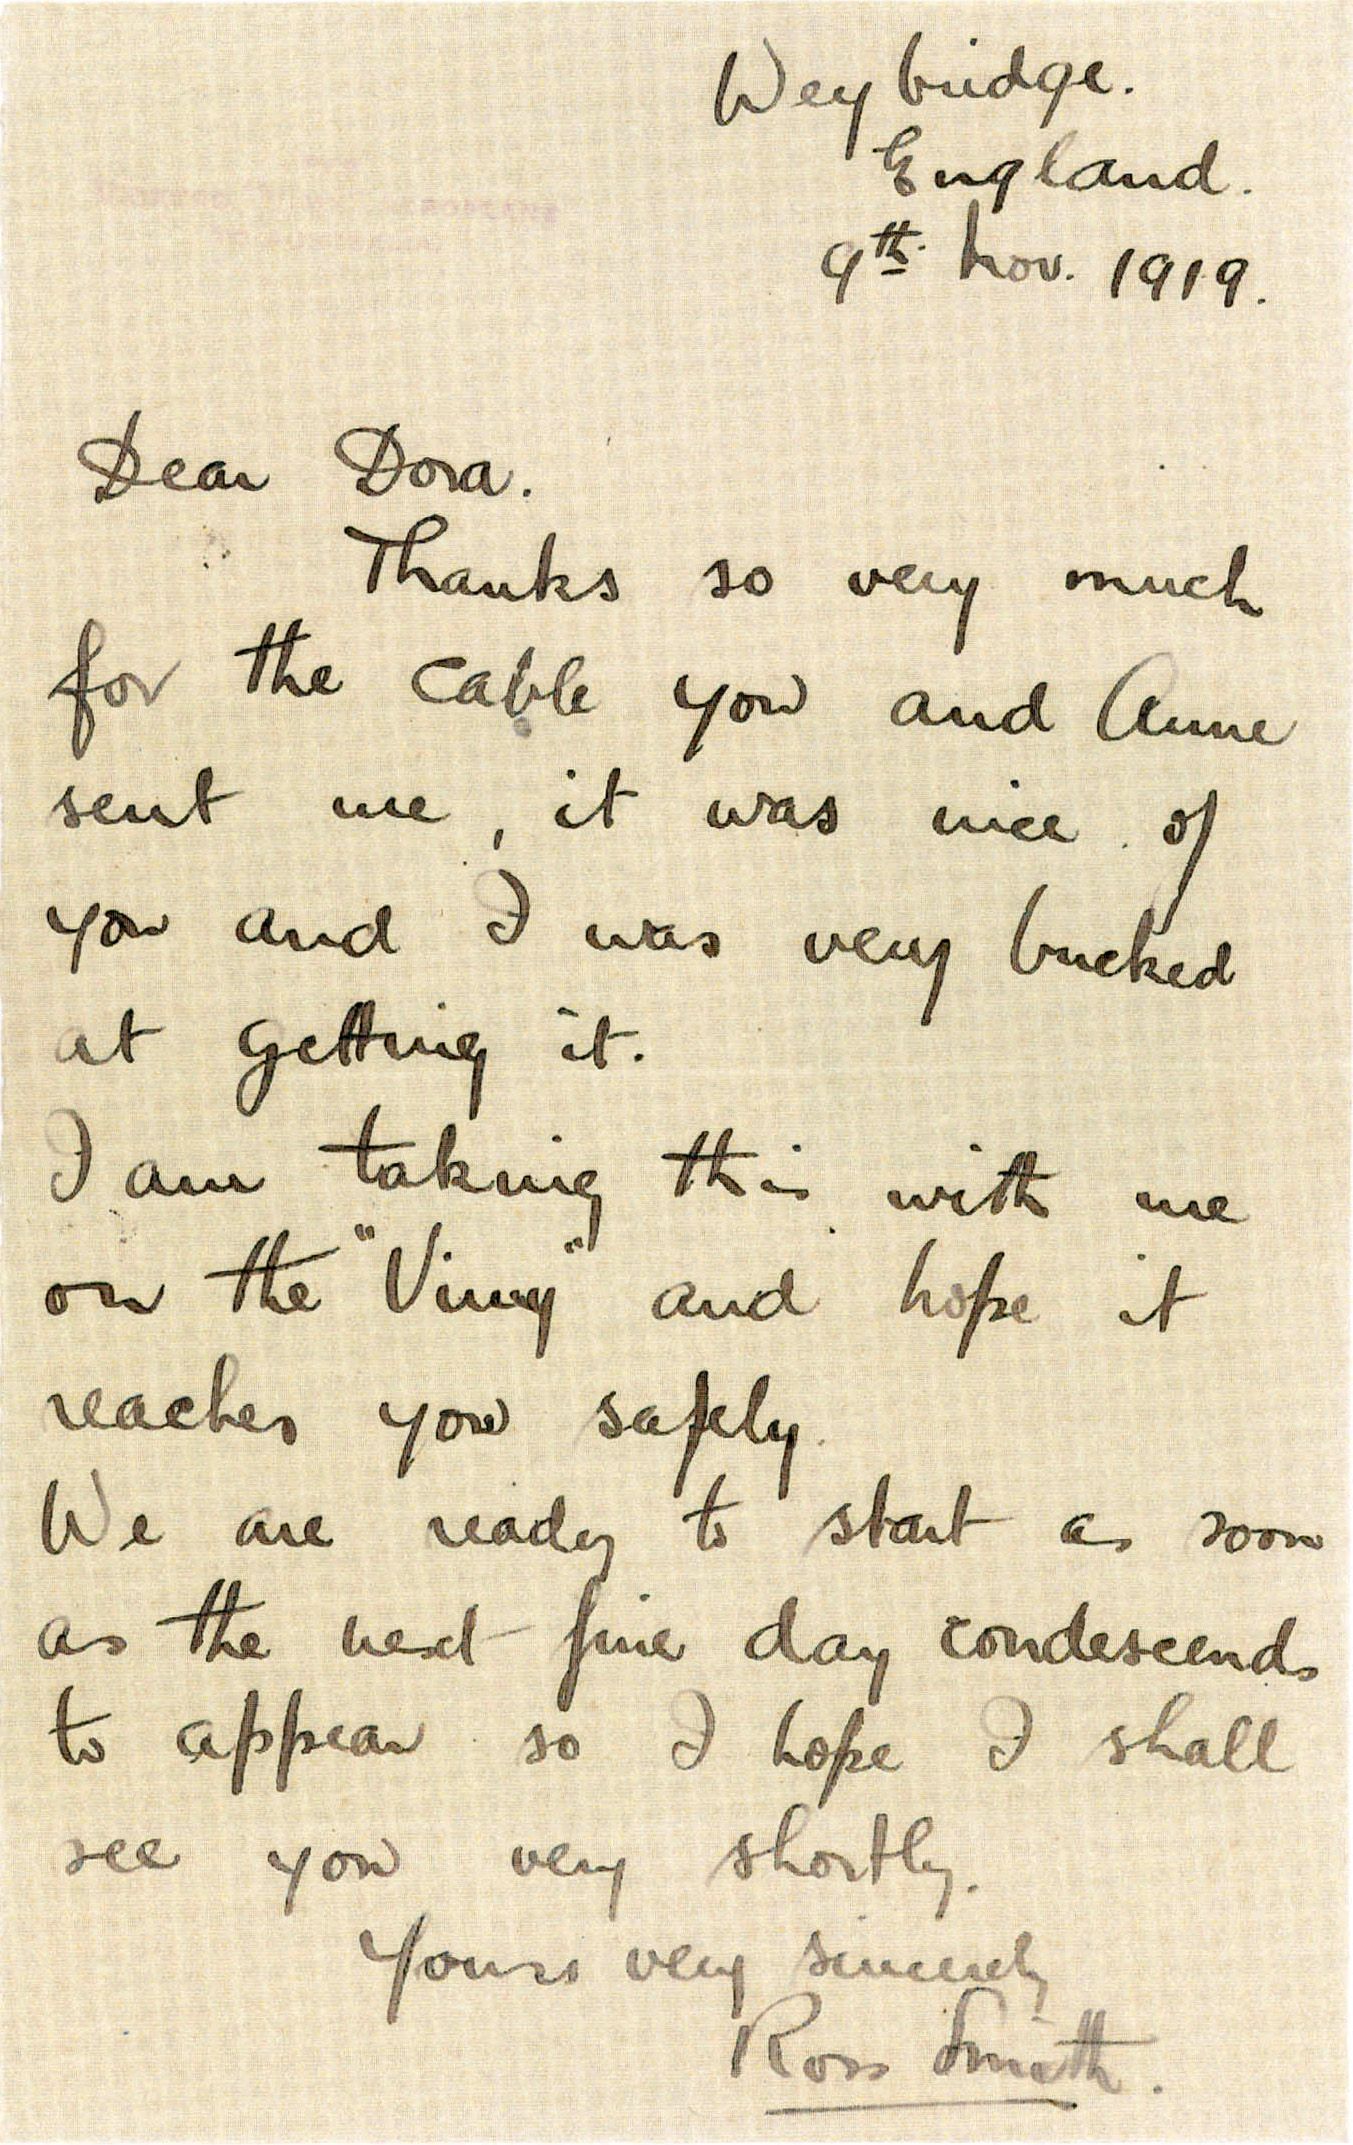 Weybridge.
England.
9th. Nov. 1919.
Dear Dora.
Thanks so very much
for the cable you and Anne
sent me, it was nice of
you and I was very bucked
at getting it.
I am taking this with me
on the "Vimy" and hope it
reaches you safely.
We are ready to start as soon
as the next fine day condescends
to appear so I hope I shall
see you very shortly.
Yours very sincerely
Ross Smith.